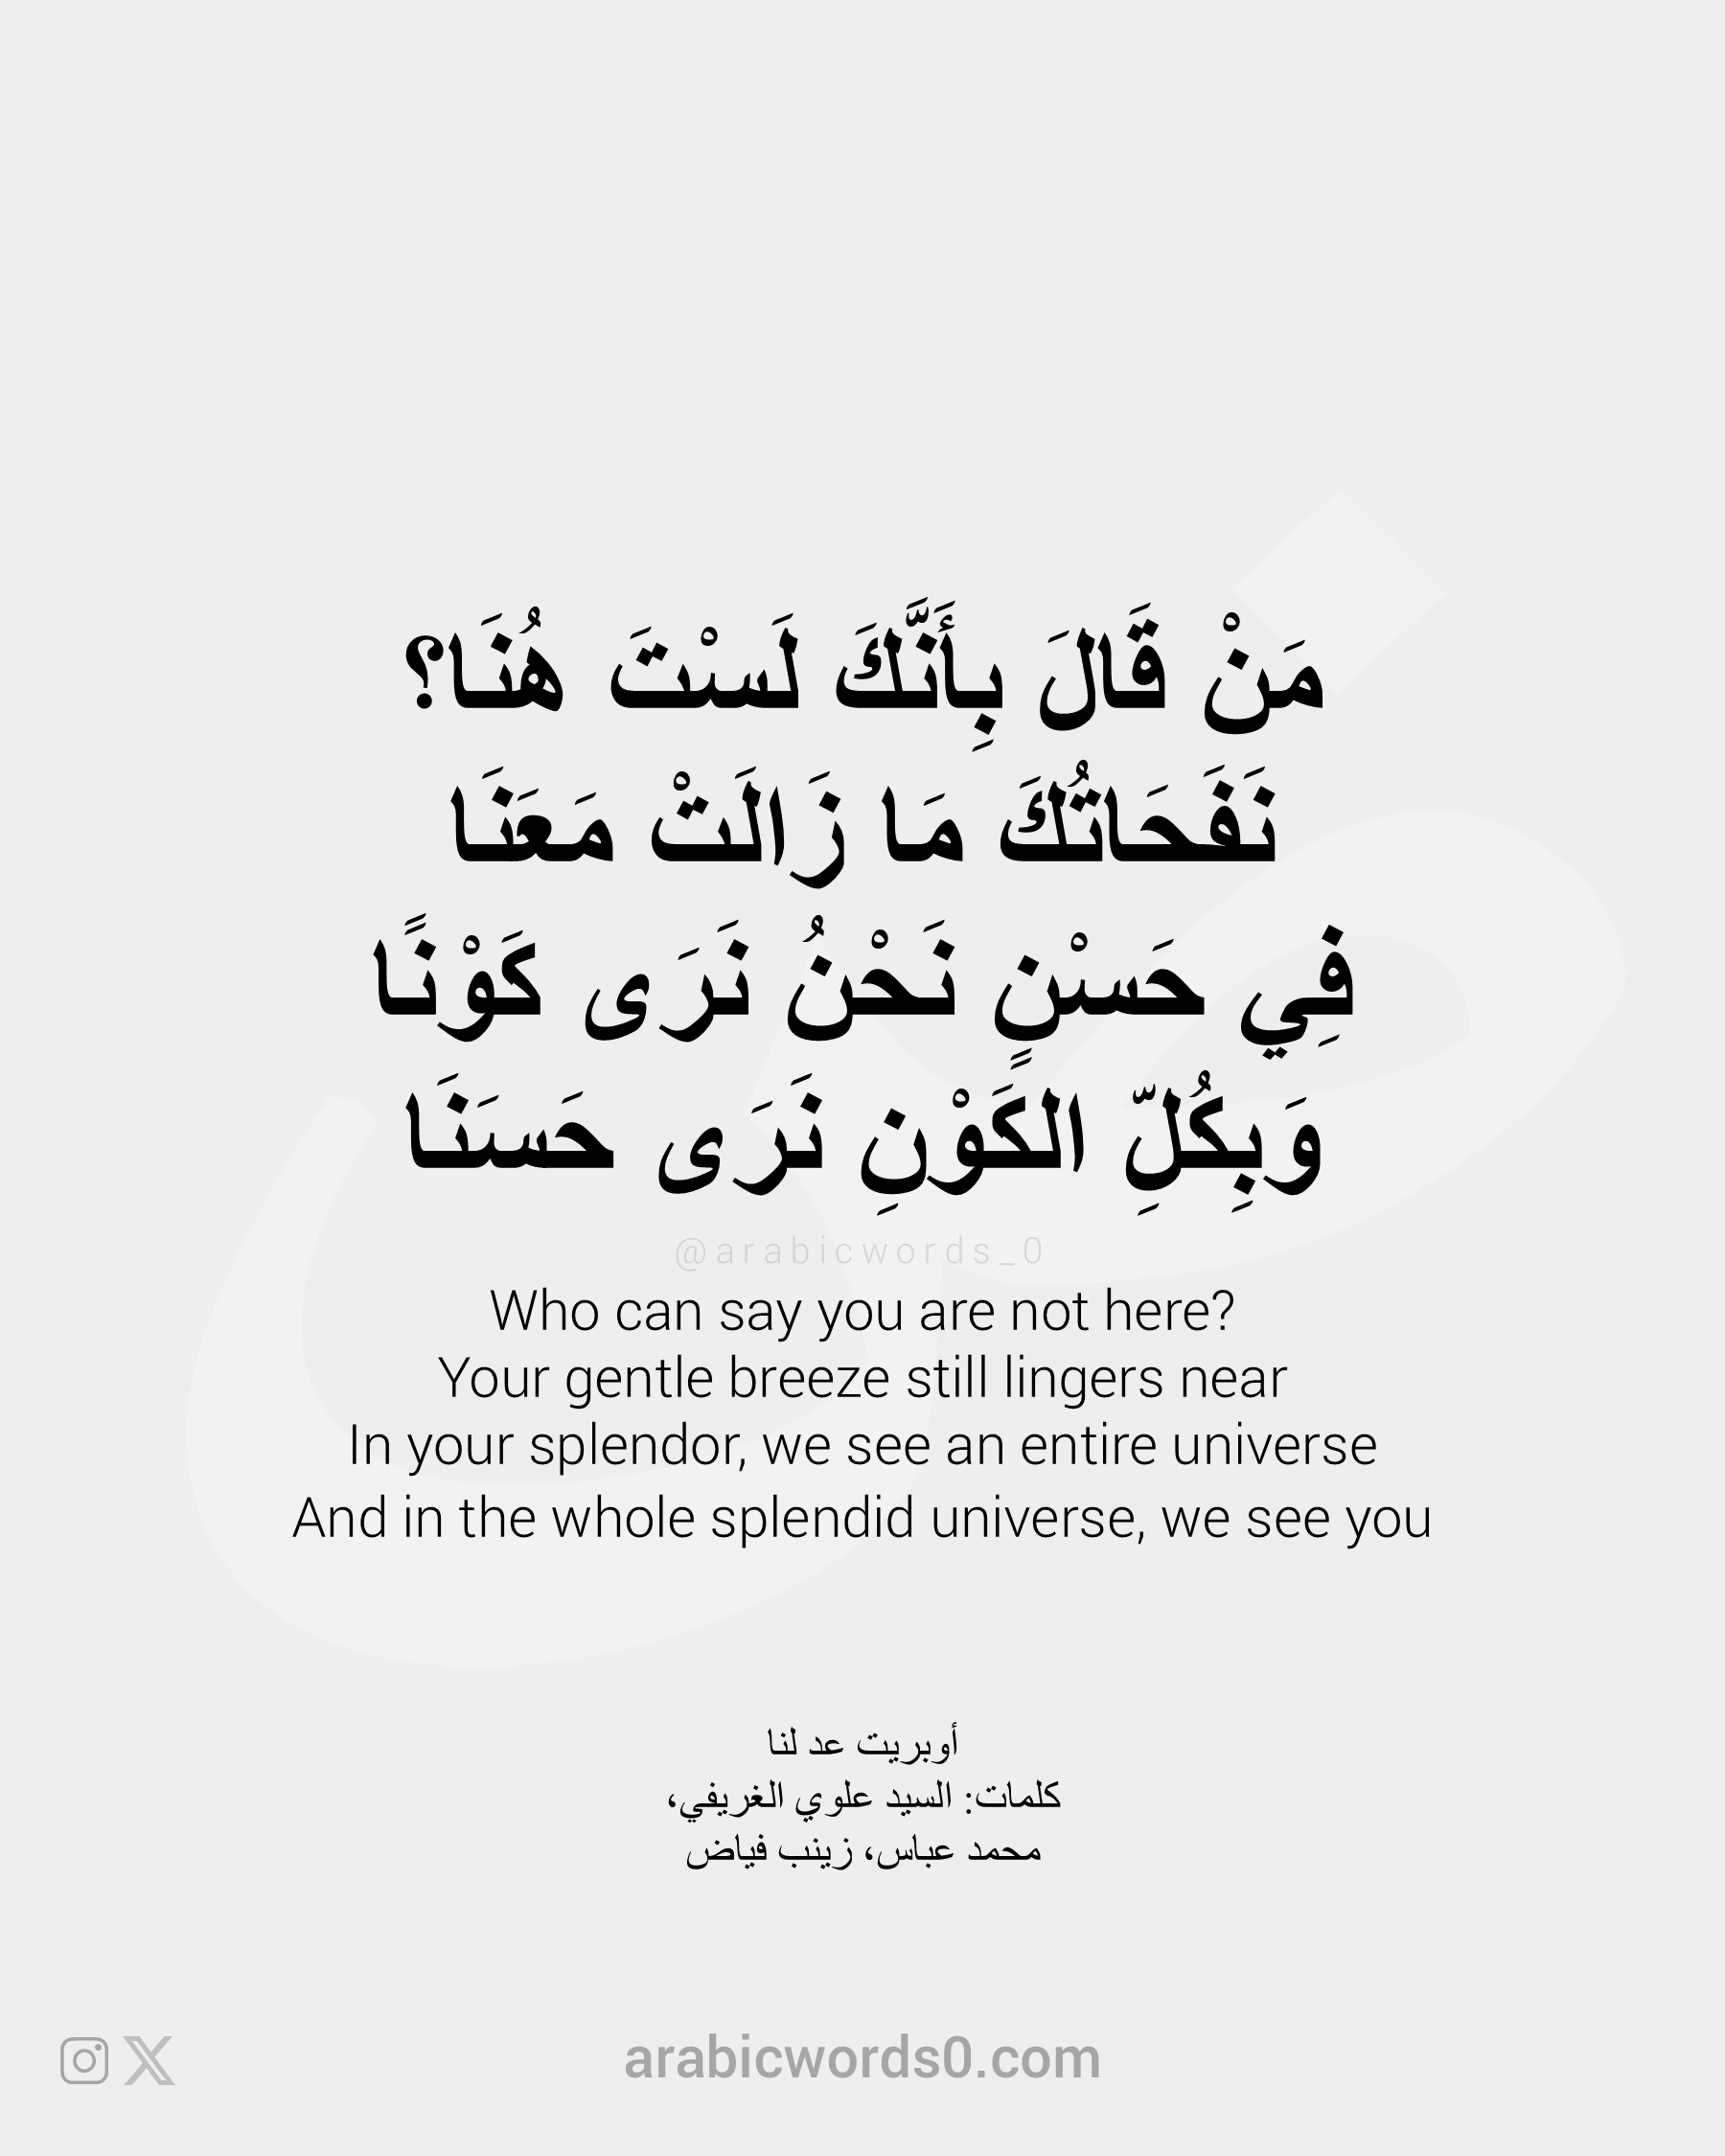 مَنْ قَالَ بِأَنَّكَ لَسْتَ هُنَا؟
نَفَحَاتُكَ مَا زَالَتْ مَعَنَا
فِي حَسْنٍ نَحْنُ نَرَى كَوْنًا
وَبِكُلِّ الكَوْنِ نَرَى حَسَنَا
@arabicwords_0
Who can say you are not here?
Your gentle breeze still lingers near
In your splendor, we see an entire universe
And in the whole splendid universe, we see you
أوبريت عد لنا
كلمات: السيد علوي الغريفي،
محمد عباس، زينب فياض
arabicwords0.com